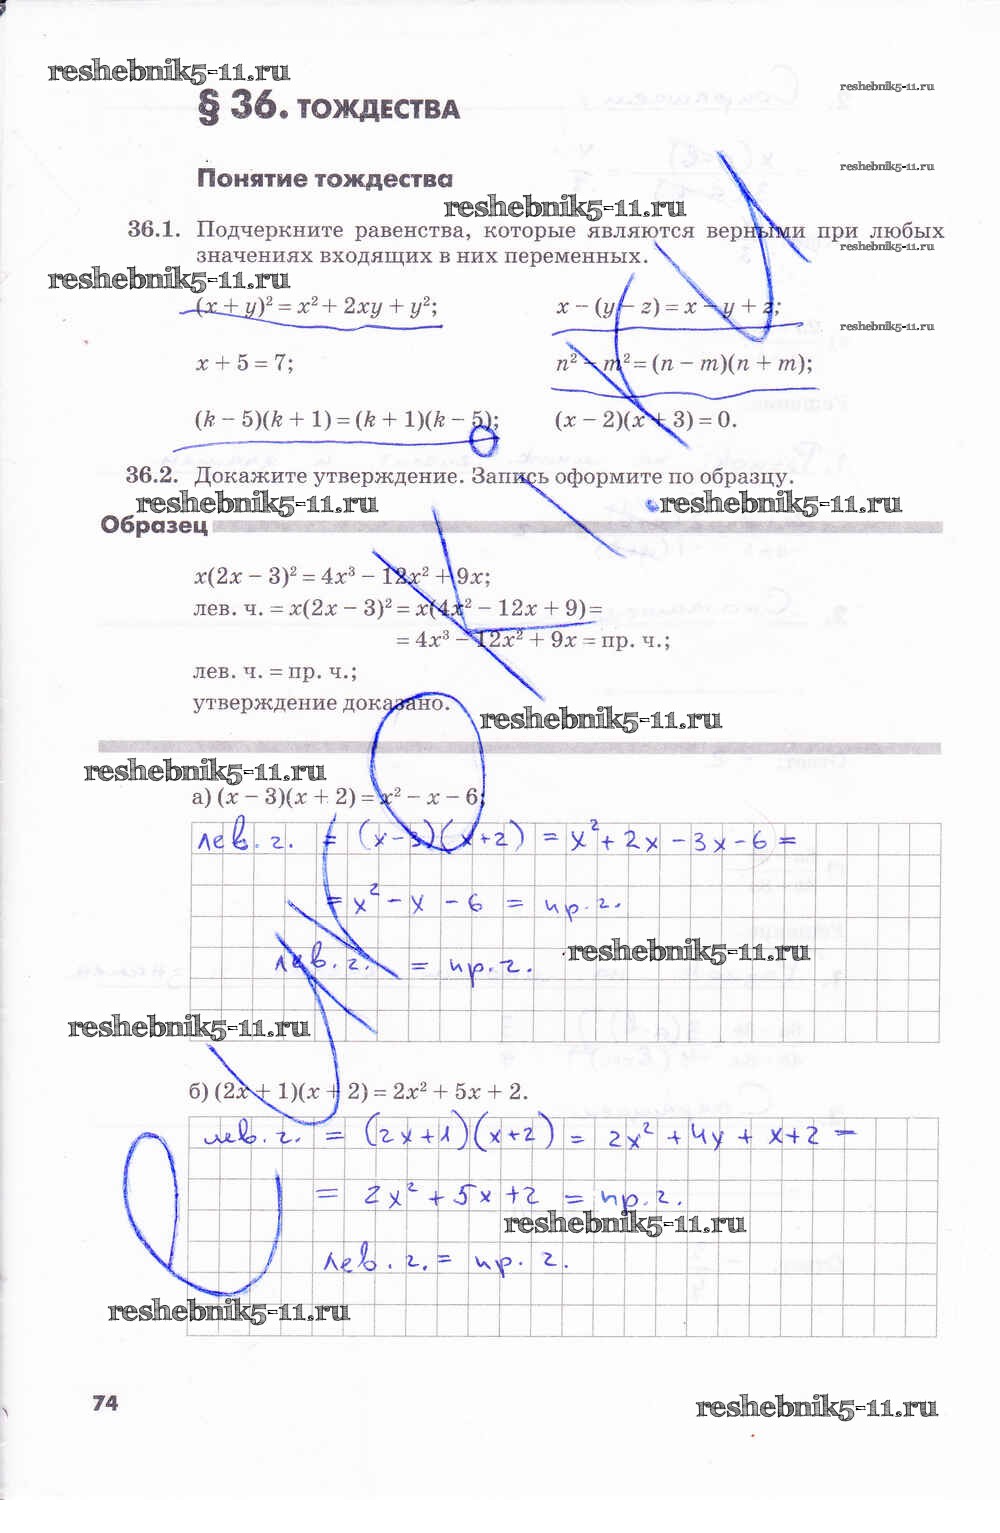 reshebnik5-11.ru
reshebnik5-11.ru
§ 36. ТОЖДЕСТВА
Понятие тождества
reshebnik5-11.ru
reshebnik5-11.ru
36.1. Подчеркните равенства, которые являются верными при любых
reshebnik5-11.ru
значениях входящих в них переменных.
reshebnik5-11.ru
(x + y)² = x² + 2xy + y²; x − (y − z) = x − y + z;
reshebnik5-11.ru
x + 5 = 7; n² − m² = (n − m)(n + m);
(k − 5)(k + 1) = (k + 1)(k − 5); (x − 2)(x + 3) = 0.
36.2. Докажите утверждение. Запись оформите по образцу.
reshebnik5-11.ru reshebnik5-11.ru
Образец
x(2x − 3)² = 4x³ − 12x² + 9x;
лев. ч. = x(2x − 3)² = x(4x² − 12x + 9) =
= 4x³ − 12x² + 9x = пр. ч.;
лев. ч. = пр. ч.;
утверждение доказано.
reshebnik5-11.ru
reshebnik5-11.ru
а) (x − 3)(x + 2) = x² − x − 6;
лев. ч. = (x−3)(x+2) = x² + 2x − 3x − 6 =
= x² − x − 6 = пр. ч.
reshebnik5-11.ru
лев. ч. = пр. ч.
reshebnik5-11.ru
б) (2x + 1)(x + 2) = 2x² + 5x + 2.
лев. ч. = (2x+1)(x+2) = 2x² + 4x + x + 2 =
= 2x² + 5x + 2 = пр. ч.
reshebnik5-11.ru
лев. ч. = пр. ч.
reshebnik5-11.ru
74
reshebnik5-11.ru